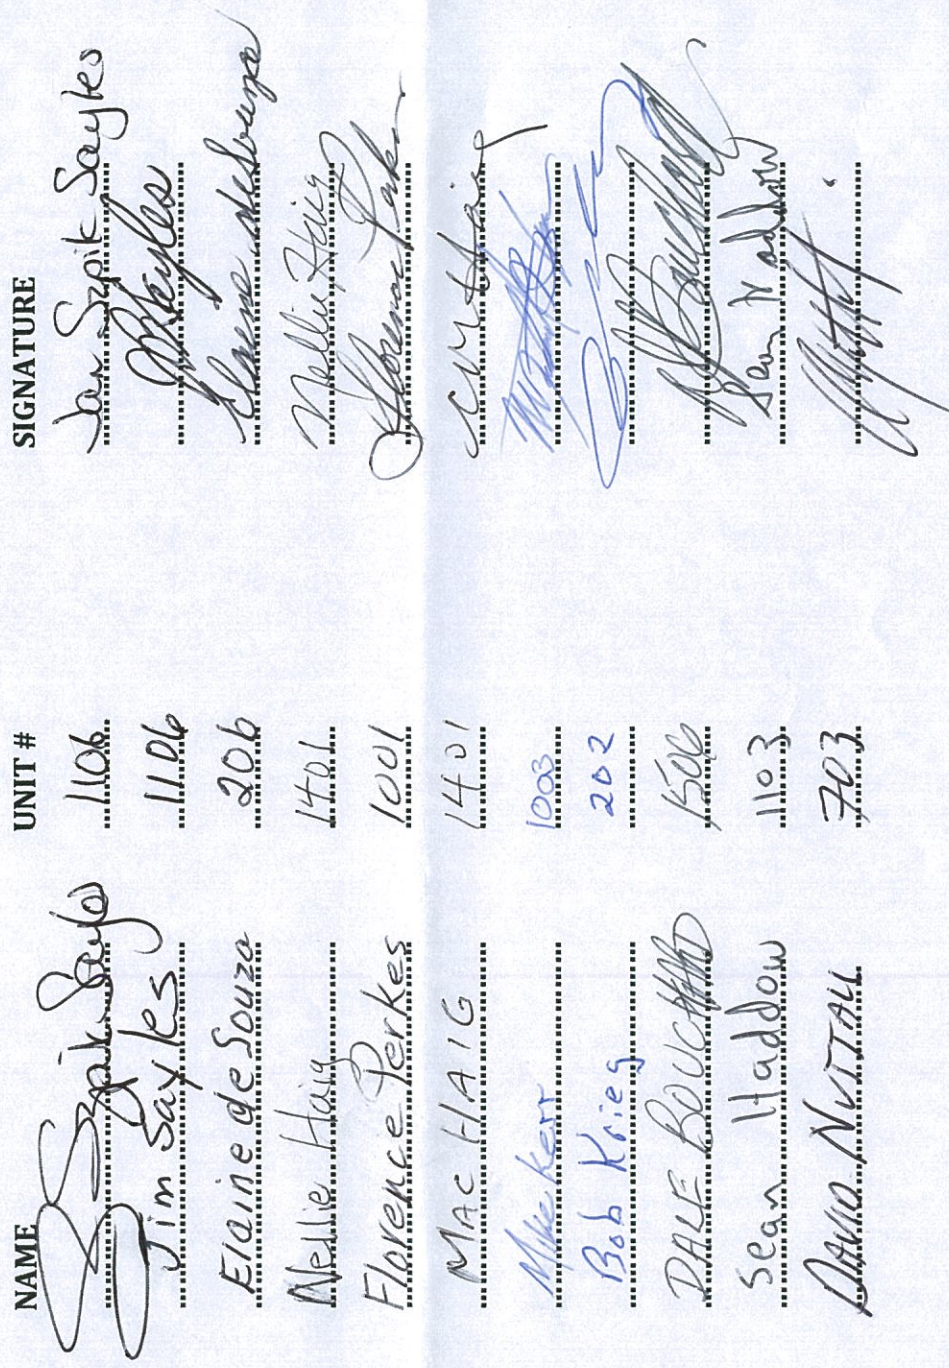 NAME UNIT # SIGNATURE
Szpik Sayles 1106 Jan Szpik Sayles
Jim Sayles 1106 Sayles
Elaine de Souza 206 Elaine deSouza
Nellie Haig 1401 Nellie Haig
Florence Perkes 1001 Florence Perkes
MAC HAIG 1401 Haig
Mike Kerr 1003
Bob Krieg 202
DALE BOUCHARD 1506 Bouchard
Sean Haddow 1103 Sean Haddow
DAVID NUTTALL 703